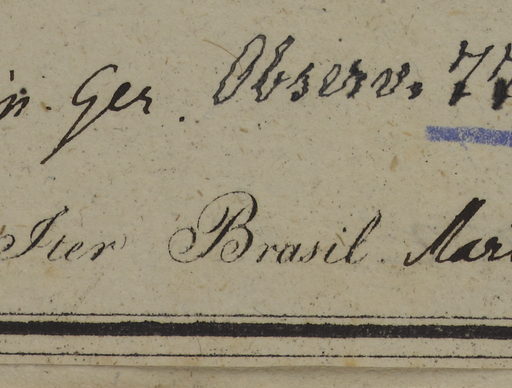 in. Ger. Observ. 77
Iter Brasil. Mart